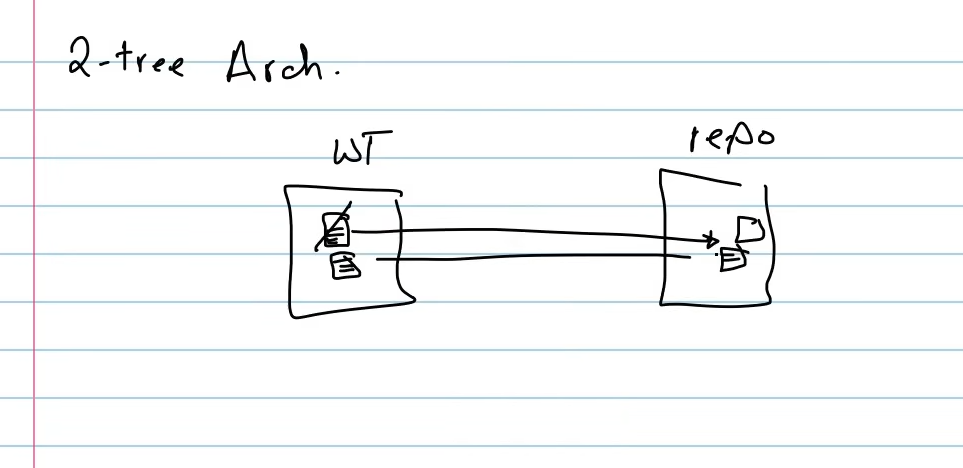 2-tree Arch.
WT
repo